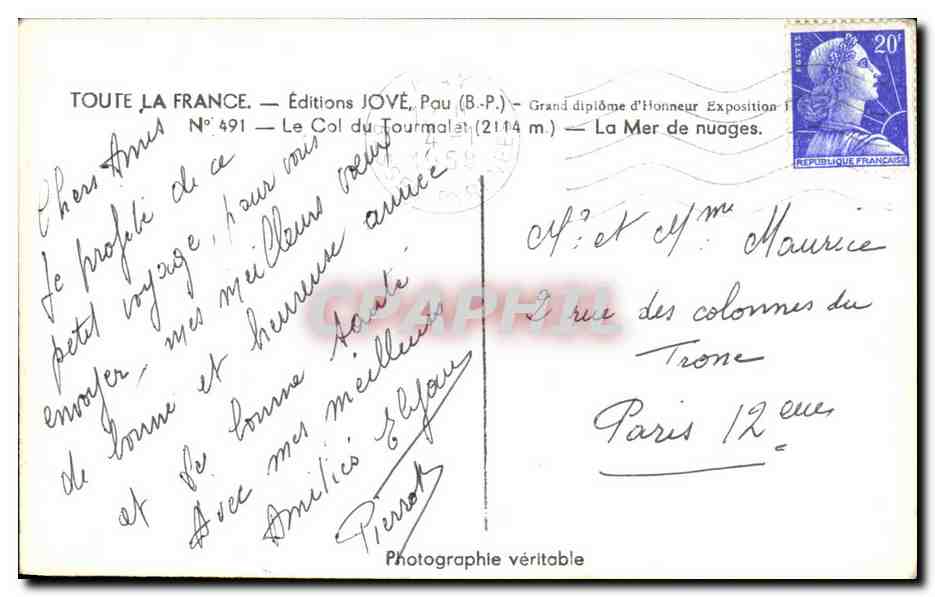 TOUTE LA FRANCE. — Éditions JOVÉ, Pau (B.-P.) - Grand diplôme d'Honneur Exposition 1
N° 491 — Le Col du Tourmalet (2114 m.) — La Mer de nuages.
POSTES
20F
REPUBLIQUE FRANÇAISE
4 - 1
1958
Chers Amis
Je profite de ce
petit voyage, pour vous
envoyer, mes meilleurs voeux
de bonne et heureuse année
et de bonne santé.
Avec mes meilleures
Amitiés
Pierrot
Mr et Mme Maurice
2 rue des colonnes du
Trone
Paris 12eme
CPAPHIL
Photographie véritable